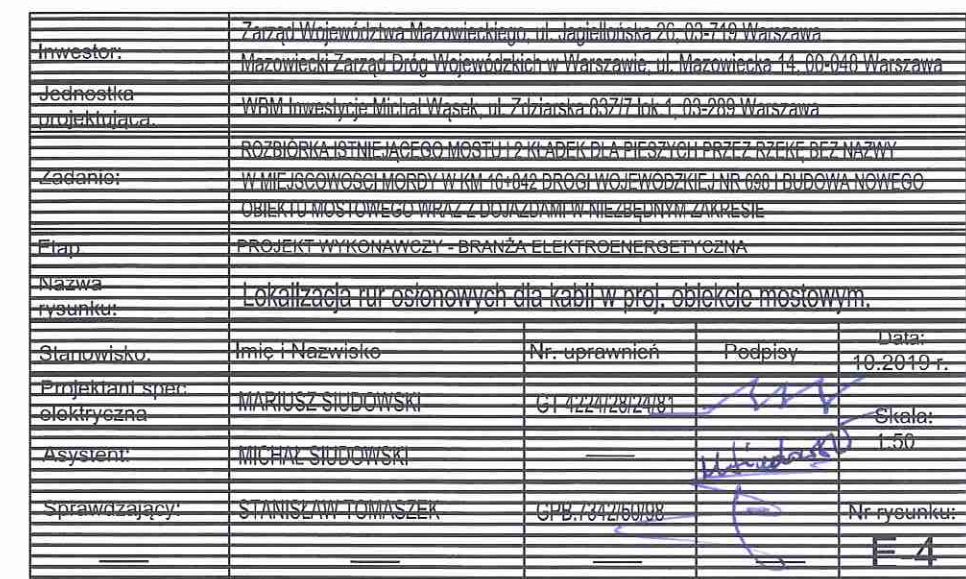 Inwestor:
Zarząd Województwa Mazowieckiego, ul. Jagiellońska 26, 03-719 Warszawa
Mazowiecki Zarząd Dróg Wojewódzkich w Warszawie, ul. Mazowiecka 14, 00-048 Warszawa
Jednostka
projektująca:
WBM Inwestycje Michał Wąsek, ul. Zdziarska 83Z/7 lok 1, 03-289 Warszawa
Zadanie:
ROZBIÓRKA ISTNIEJĄCEGO MOSTU I 2 KŁADEK DLA PIESZYCH PRZEZ RZEKĘ BEZ NAZWY
W MIEJSCOWOŚCI MORDY W KM 16+842 DROGI WOJEWÓDZKIEJ NR 698 I BUDOWA NOWEGO
OBIEKTU MOSTOWEGO WRAZ Z DOJAZDAMI W NIEZBĘDNYM ZAKRESIE
Etap:
PROJEKT WYKONAWCZY - BRANŻA ELEKTROENERGETYCZNA
Nazwa
rysunku:
Lokalizacja rur osłonowych dla kabli w proj. obiekcie mostowym.
Stanowisko: Imię i Nazwisko Nr. uprawnień Podpisy
Data:
10.2019 r.
Projektant spec.
elektryczna
MARIUSZ SIUDOWSKI GT 4224/28/24/81
Skala:
1:50
Asystent: MICHAŁ SIUDOWSKI —
Sprawdzający: STANISŁAW TOMASZEK GPB.7342/60/98
Nr rysunku:
E-4
— — — —